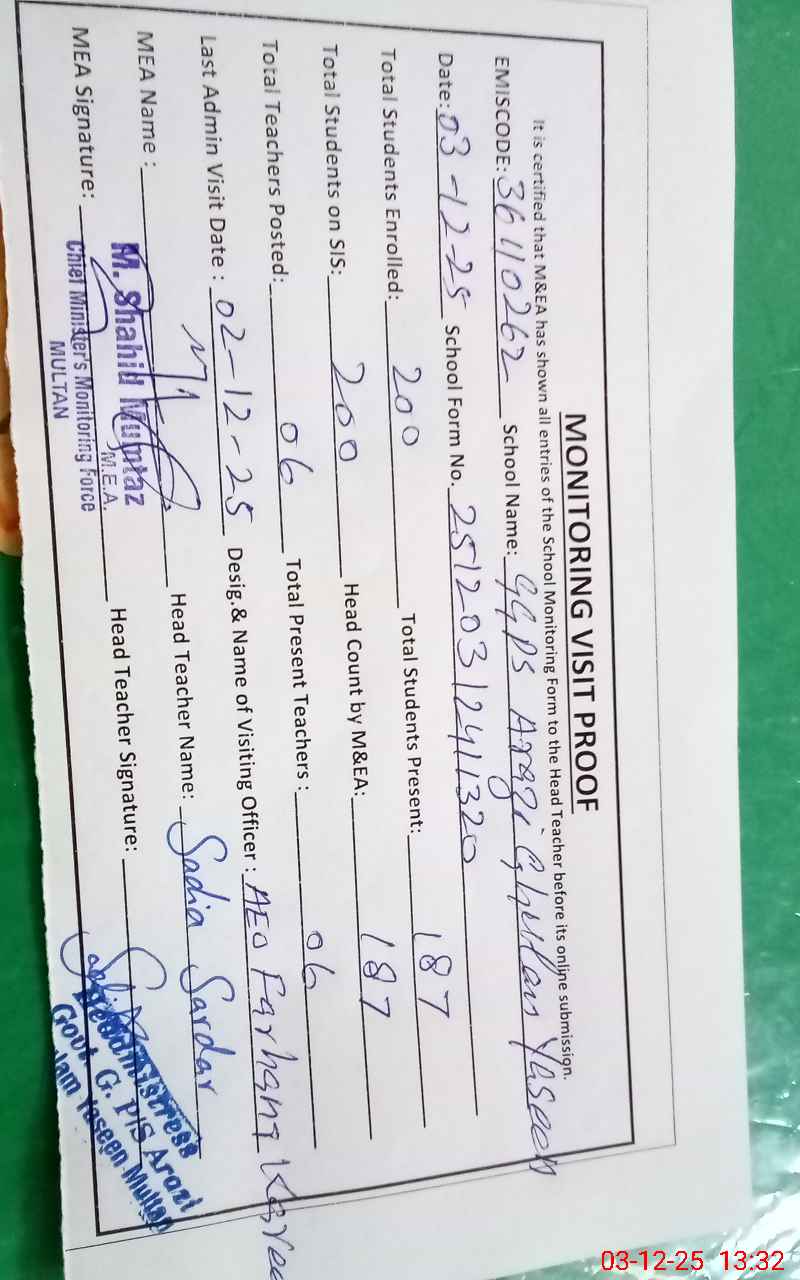 MONITORING VISIT PROOF
It is certified that M&EA has shown all entries of the School Monitoring Form to the Head Teacher before its online submission.
EMISCODE: 36110262 School Name: GGPS Arazi Ghulam Yaseen
Date: 03-12-25 School Form No. 25120312411320
Total Students Enrolled: 200 Total Students Present: 187
Total Students on SIS: 200 Head Count by M&EA: 187
Total Teachers Posted: 06 Total Present Teachers : 06
Last Admin Visit Date : 02-12-25 Desig.& Name of Visiting Officer : AEO Farhana
MEA Name : Head Teacher Name: Sadia Sardar
M. Shahid Mumtaz
M.E.A.
MEA Signature: Head Teacher Signature:
Chief Minister's Monitoring Force
MULTAN
Headmistress
Govt. G. P/S Arazi
Yaseen Multan
03-12-25 13:32